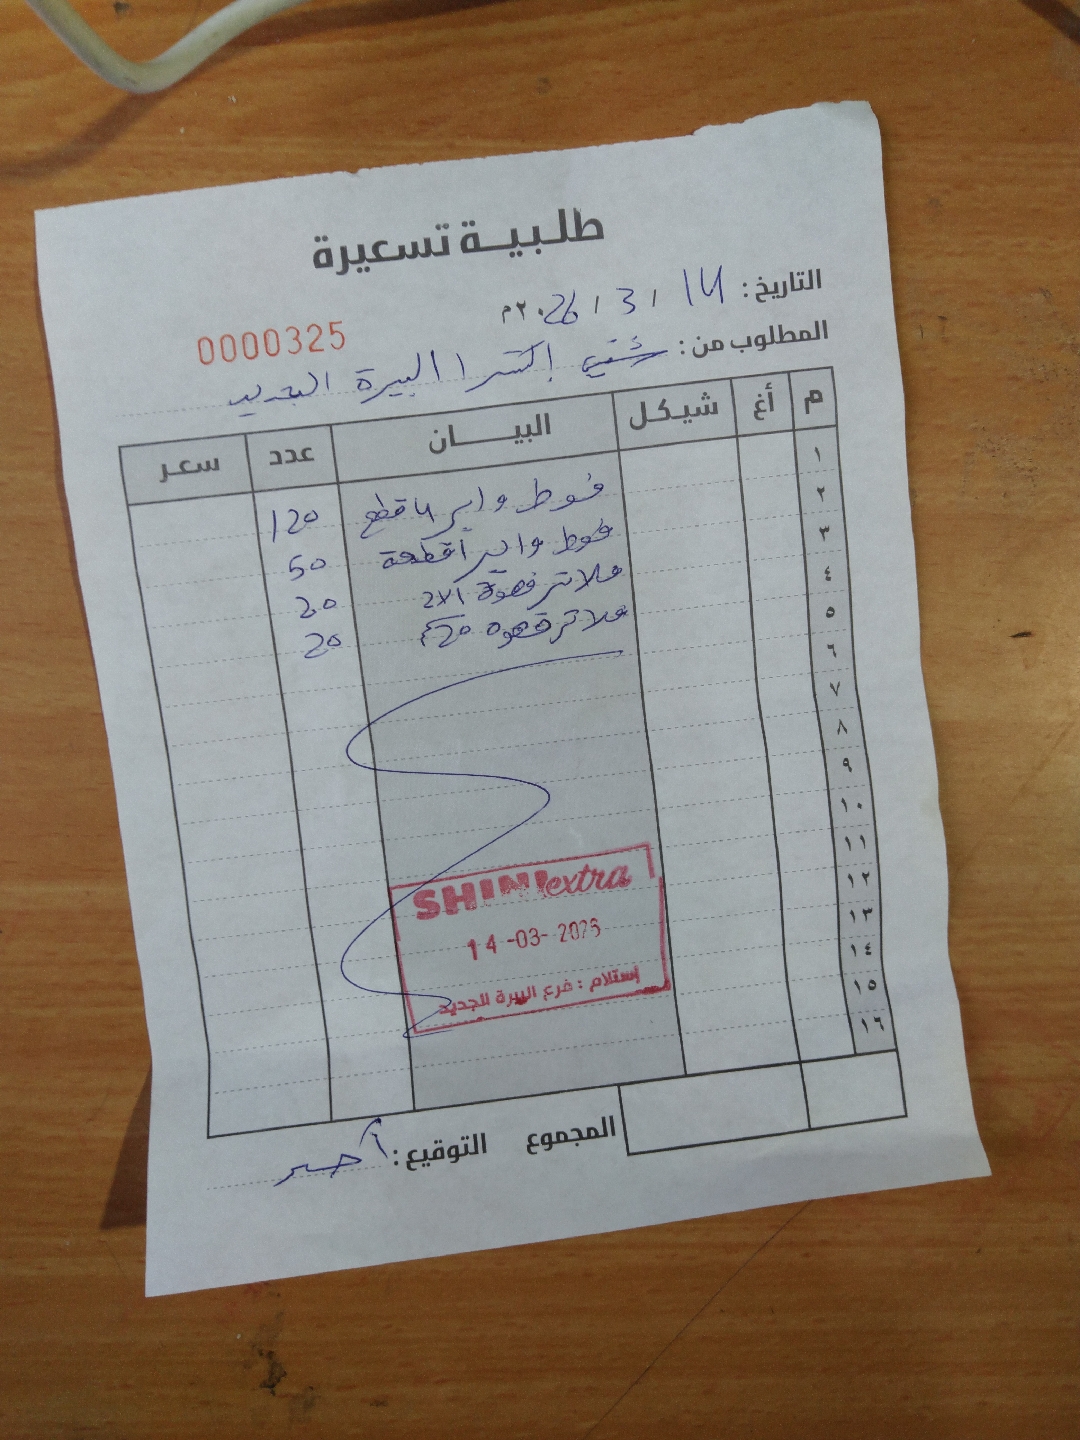 طلبية تسعيرة
التاريخ : 14 / 3 / 2026م
0000325
المطلوب من : شيني إكسترا البيرة الجديد
م أغ شيكل البيان عدد سعر
١
فوط واير 4 قطع 120
٢
فوط واير 1 قطعة 50
٣
فلاتر قهوة 20
٤
فلاتر قهوة 20
٥
٦
٧
٨
٩
١٠
١١
١٢
١٣
١٤
١٥
١٦
SHINI extra
14-03-2026
إستلام : فرع البيرة الجديد
المجموع
التوقيع :